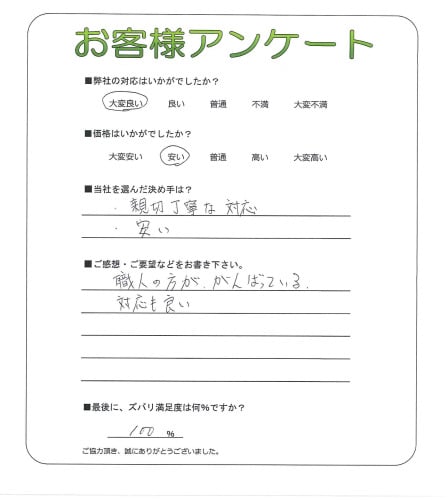 お客様アンケート
■弊社の対応はいかがでしたか？
大変良い 良い 普通 不満 大変不満
■価格はいかがでしたか？
大変安い 安い 普通 高い 大変高い
■当社を選んだ決め手は？
・親切丁寧な対応
・安い
■ご感想・ご要望などをお書き下さい。
職人の方が、がんばっている、
対応も良い
■最後に、ズバリ満足度は何％ですか？
100 ％
ご協力頂き、誠にありがとうございました。